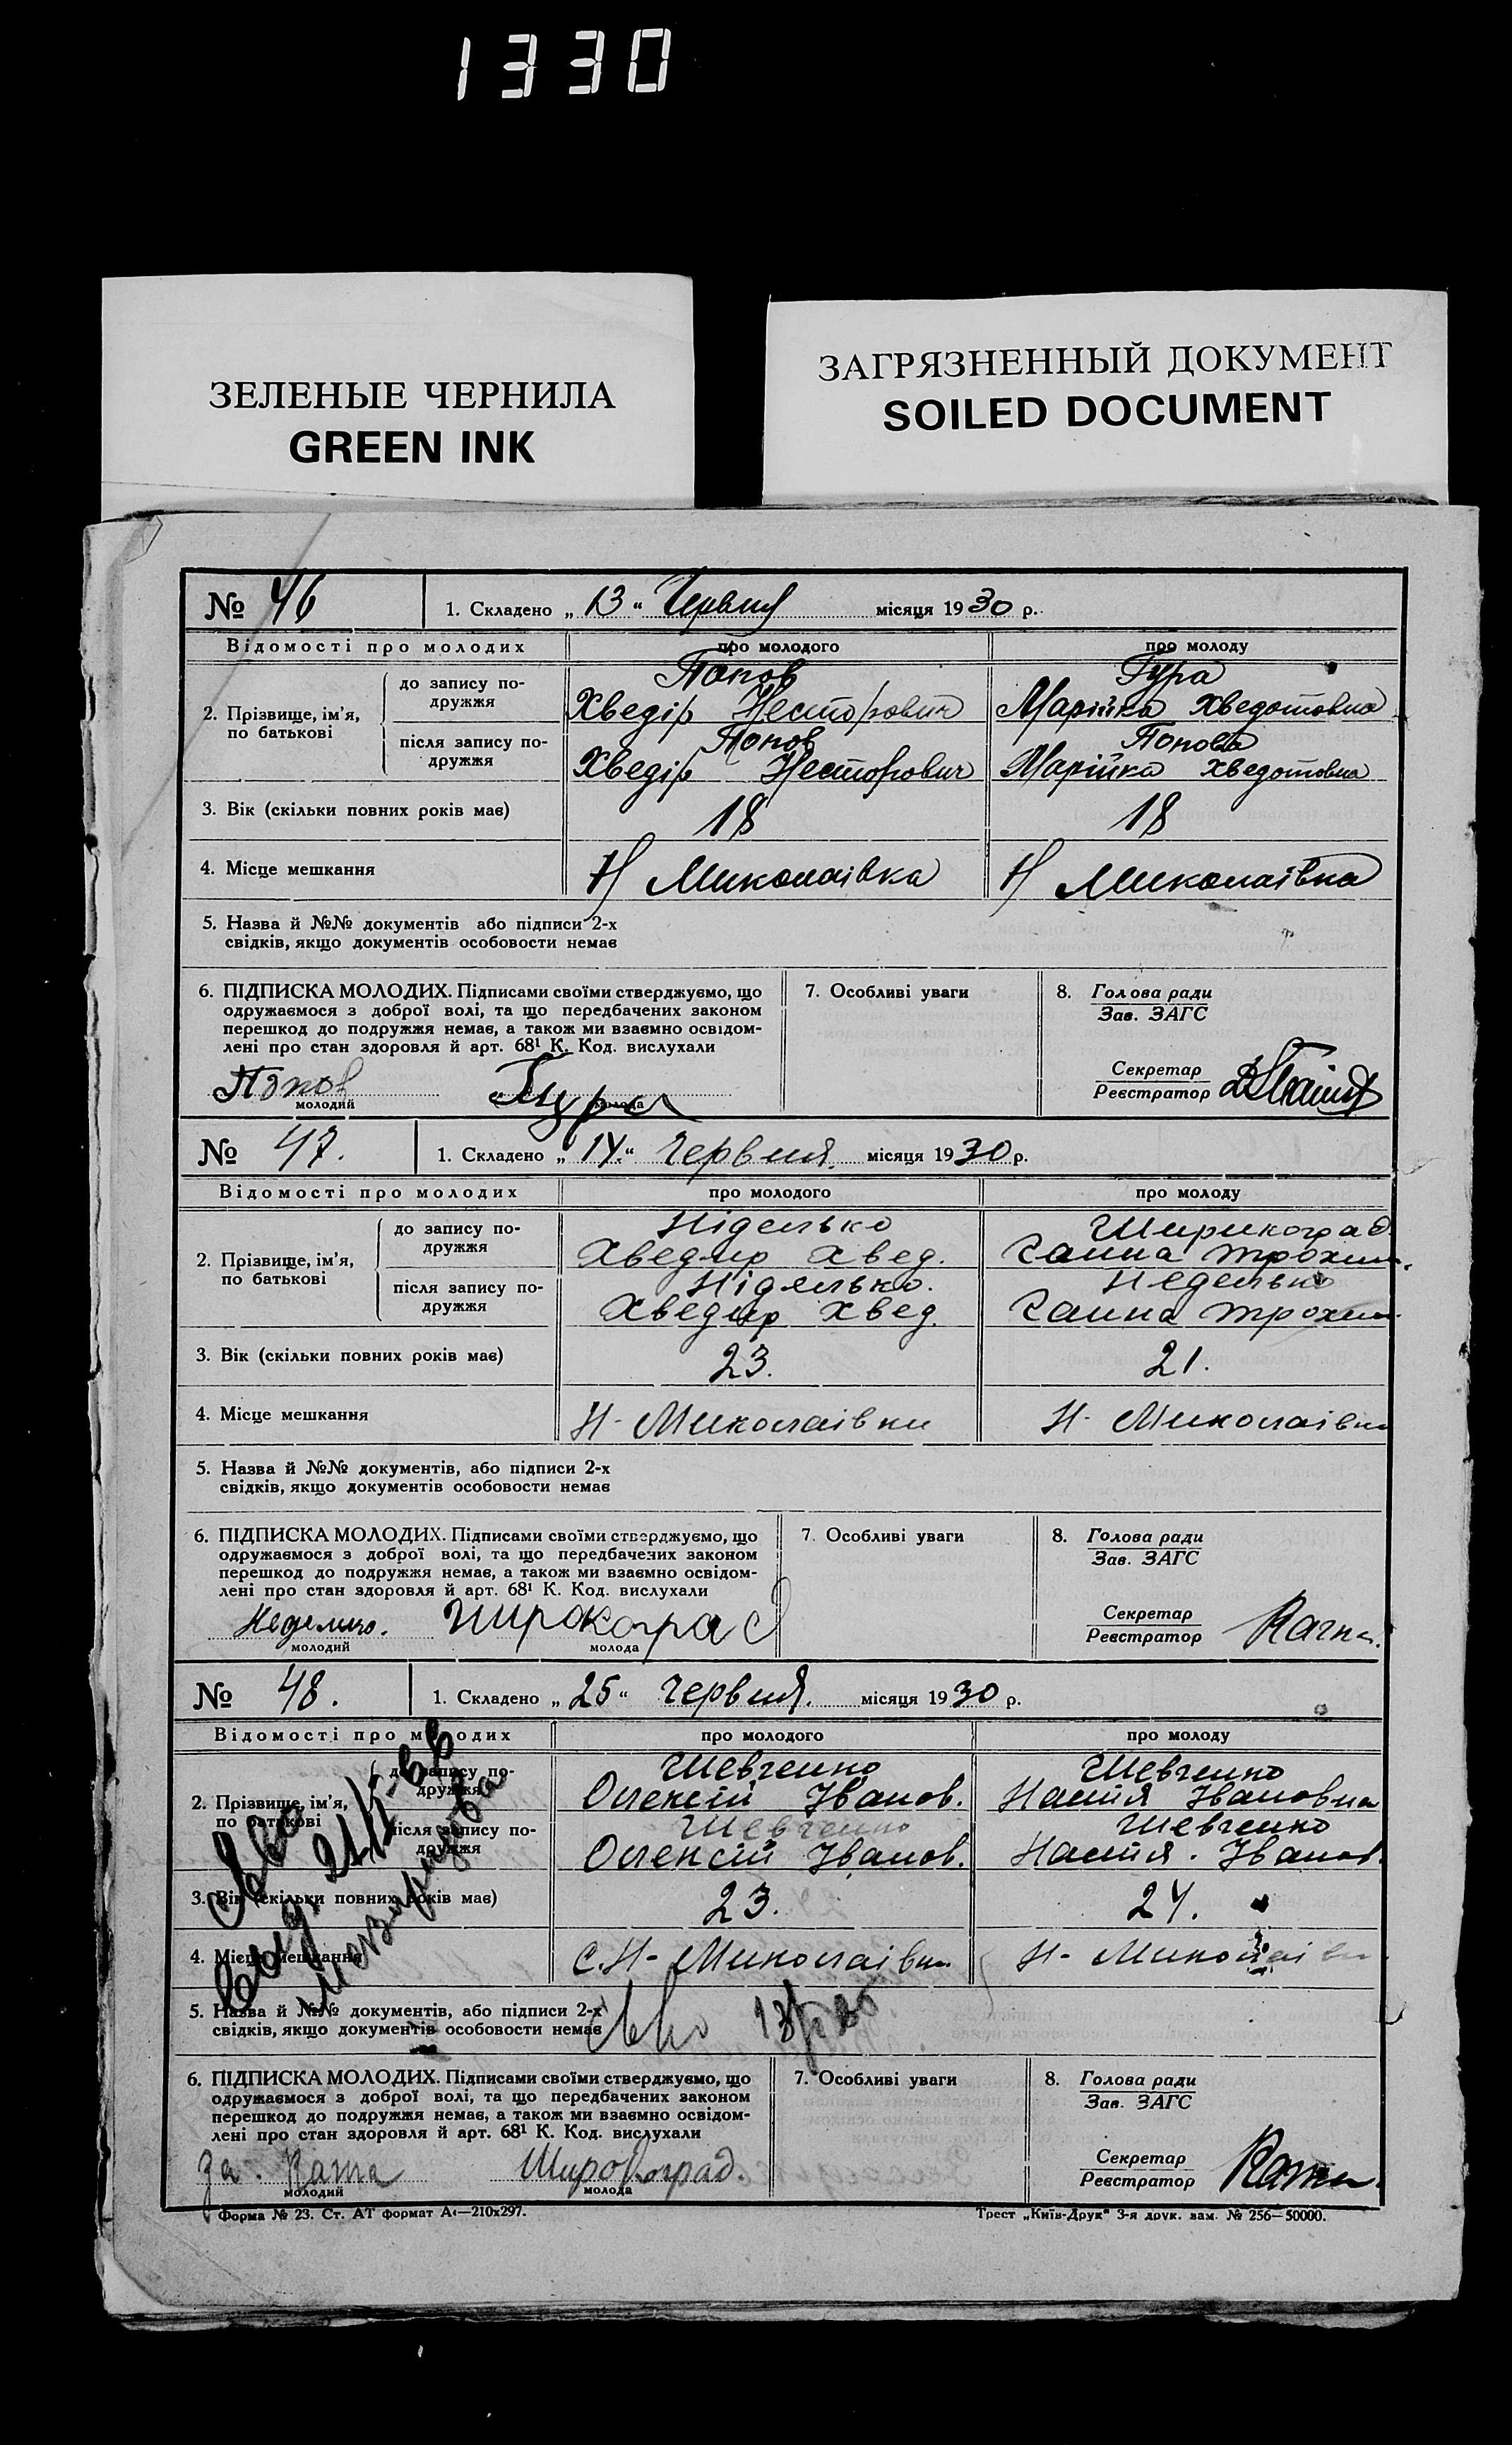 1330
ЗЕЛЕНЫЕ ЧЕРНИЛА
GREEN INK
ЗАГРЯЗНЕННЫЙ ДОКУМЕНТ
SOILED DOCUMENT
№ 46 1. Складено „ 13 “ Червня місяця 1930 р.
Відомості про молодих про молодого про молоду
2. Прізвище, ім’я, по батькові
до запису подружжя
Попов Гура
Хведір Несторович Марійка Хведотовна
після запису подружжя
Попов Попова
Хведір Несторович Марійка Хведотовна
3. Вік (скільки повних років має) 18 18
4. Місце мешкання Н Миколаівка Н Миколаівка
5. Назва й №№ документів або підписи 2-х
свідків, якщо документів особовости немає
6. ПІДПИСКА МОЛОДИХ. Підписами своїми стверджуємо, що
одружаємося з доброї волі, та що передбачених законом
перешкод до подружжя немає, а також ми взаємно освідом-
лені про стан здоровля й арт. 68¹ К. Код. вислухали
7. Особливі уваги
8. Голова ради
Зав. ЗАГС
Секретар
Реєстратор
Попов Гура
молодий молода
№ 47. 1. Складено „ 14. “ Червня. місяця 1930 р.
Відомості про молодих про молодого про молоду
2. Прізвище, ім’я, по батькові
до запису подружжя
Ніделько Ширикоград
Хведир Хвед. Ганна Трохим.
після запису подружжя
Ніделько. Неделько
Хведир Хвед. Ганна Трохим.
3. Вік (скільки повних років має) 23. 21.
4. Місце мешкання Н- Миколаівки Н- Миколаівки
5. Назва й №№ документів, або підписи 2-х
свідків, якщо документів особовости немає
6. ПІДПИСКА МОЛОДИХ. Підписами своїми стверджуємо, що
одружаємося з доброї волі, та що передбачених законом
перешкод до подружжя немає, а також ми взаємно освідом-
лені про стан здоровля й арт. 68¹ К. Код. вислухали
7. Особливі уваги
8. Голова ради
Зав. ЗАГС
Секретар
Реєстратор
Широкоград
молодий молода
№ 48. 1. Складено „ 25 “ Червня. місяця 1930 р.
Відомості про молодих про молодого про молоду
2. Прізвище, ім’я, по батькові
до запису подружжя
Шевченко Шевченко
Олексій Іванов. Настя Івановна
після запису подружжя
Шевченко Шевченко
Олексій Іванов. Настя. Іванов.
3. Вік (скільки повних років має) 23. 24.
4. Місце мешкання С. Н- Миколаівки Н- Миколаівки
5. Назва й №№ документів, або підписи 2-х
свідків, якщо документів особовости немає
6. ПІДПИСКА МОЛОДИХ. Підписами своїми стверджуємо, що
одружаємося з доброї волі, та що передбачених законом
перешкод до подружжя немає, а також ми взаємно освідом-
лені про стан здоровля й арт. 68¹ К. Код. вислухали
7. Особливі уваги
8. Голова ради
Зав. ЗАГС
Секретар
Реєстратор
Широкоград.
молодий молода
Форма № 23. Ст. АТ формат А4—210х297.
Трест „Київ-Друк“ 3-я друк. зам. № 256—50000.